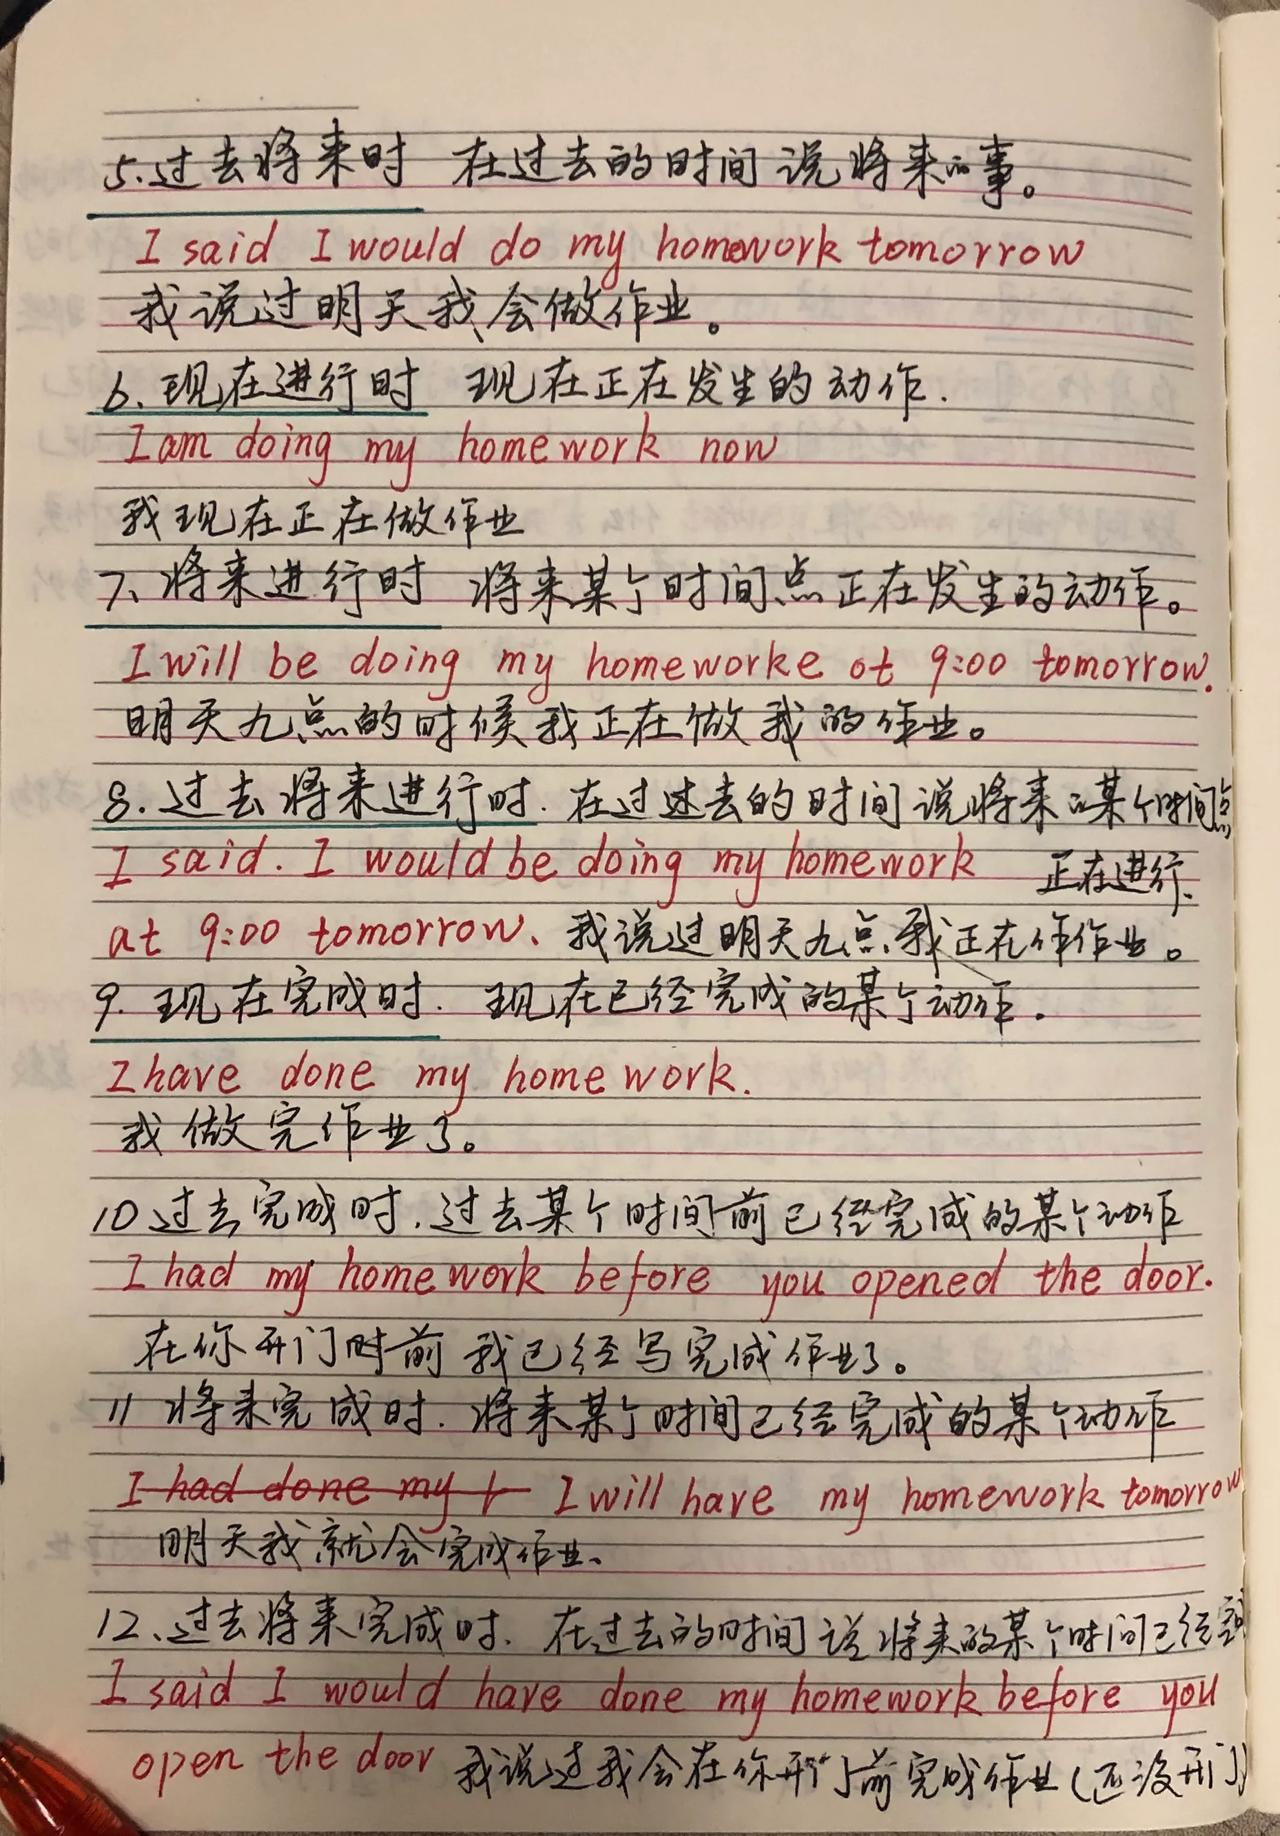 5.过去将来时 在过去的时间说将来的事。
I said I would do my homework tomorrow
我说过明天我会做作业。
6、现在进行时 现在正在发生的动作.
I am doing my homework now
我现在正在做作业
7、将来进行时 将来某个时间点正在发生的动作。
I will be doing my homeworke at 9:00 tomorrow.
明天九点的时候我正在做我的作业。
8.过去将来进行时.在过过去的时间说将来的某个时间点
I said. I would be doing my homework 正在进行.
at 9:00 tomorrow、我说过明天九点我正在作作业。
9.现在完成时. 现在已经完成的某个动作.
I have done my homework.
我做完作业了。
10过去完成时.过去某个时间前已经完成的某个动作
I had my homework before you opened the door.
在你开门时前我已经写完成作业了。
11将来完成时.将来某个时间已经完成的某个动作
I had done my I will have my homework tomorrow
明天我就会完成作业、
12、过去将来完成时.在过去的时间说将来的某个时间已经
I said I would have done my homework before you
open the door 我说过我会在你开门前完成作业(还没开门)